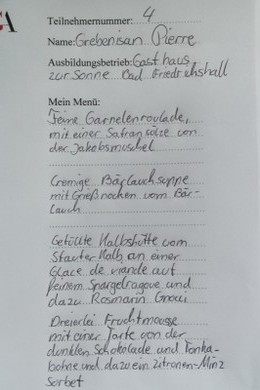 A
Teilnehmernummer: 4
Name: Grebenisan Pierre
Ausbildungsbetrieb: Gasthaus
zur Sonne Bad Friedrichshall
Mein Menü:
Feine Garnelenroulade,
mit einer Safransülze von
der Jakobsmuschel
Cremige Bärlauchsuppe
mit Grießnocken vom Bär-
lauch
Gefüllte Kalbshüfte vom
Staufer Kalb, an einer
Glace de viande auf
feinem Spargelragout und
dazu Rosmarin Gnocci
Dreierlei Fruchtmousse
mit einer Tarte von der
dunklen Schokolade und Tonka-
bohne und dazu ein Zitronen-Minz
Sorbet